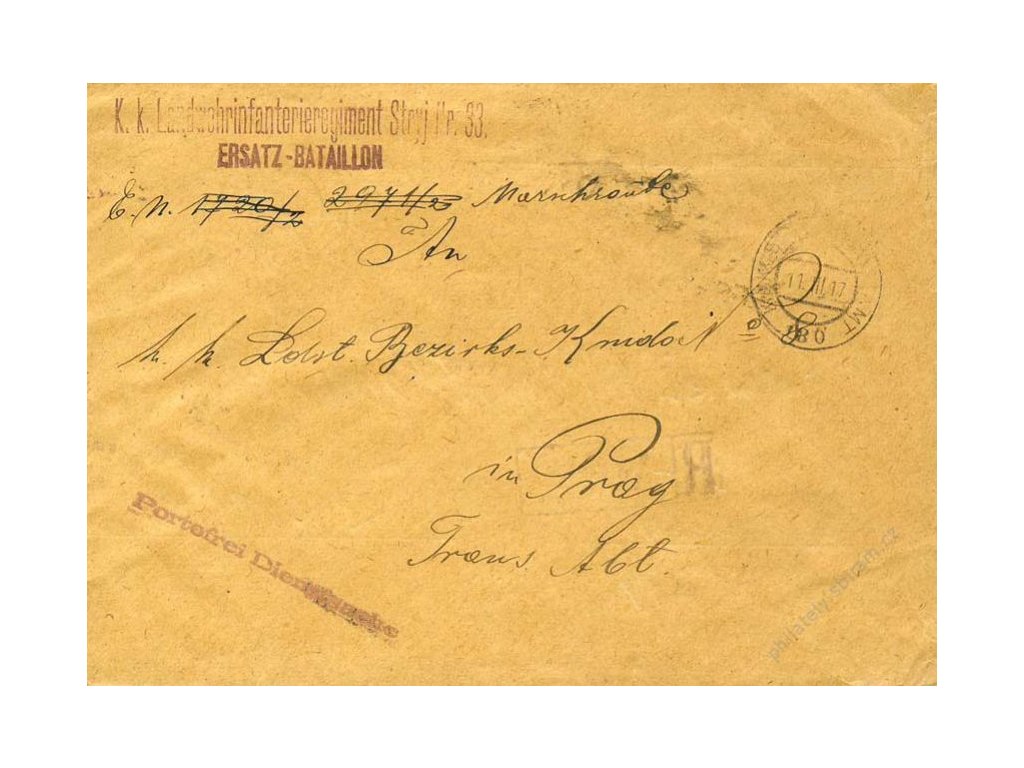 K. k. Landwehrinfanterieregiment Stryj Nr. 33.
ERSATZ-BATAILLON
E. N. 1720/2 2971/2 Marschroute
An
K. k. Ldst. Bezirks-Kmdo
in Prag
Trans. Abt.
Portofrei Dienstsache
11. III. 17
280
a
R
philately.sbiram.cz